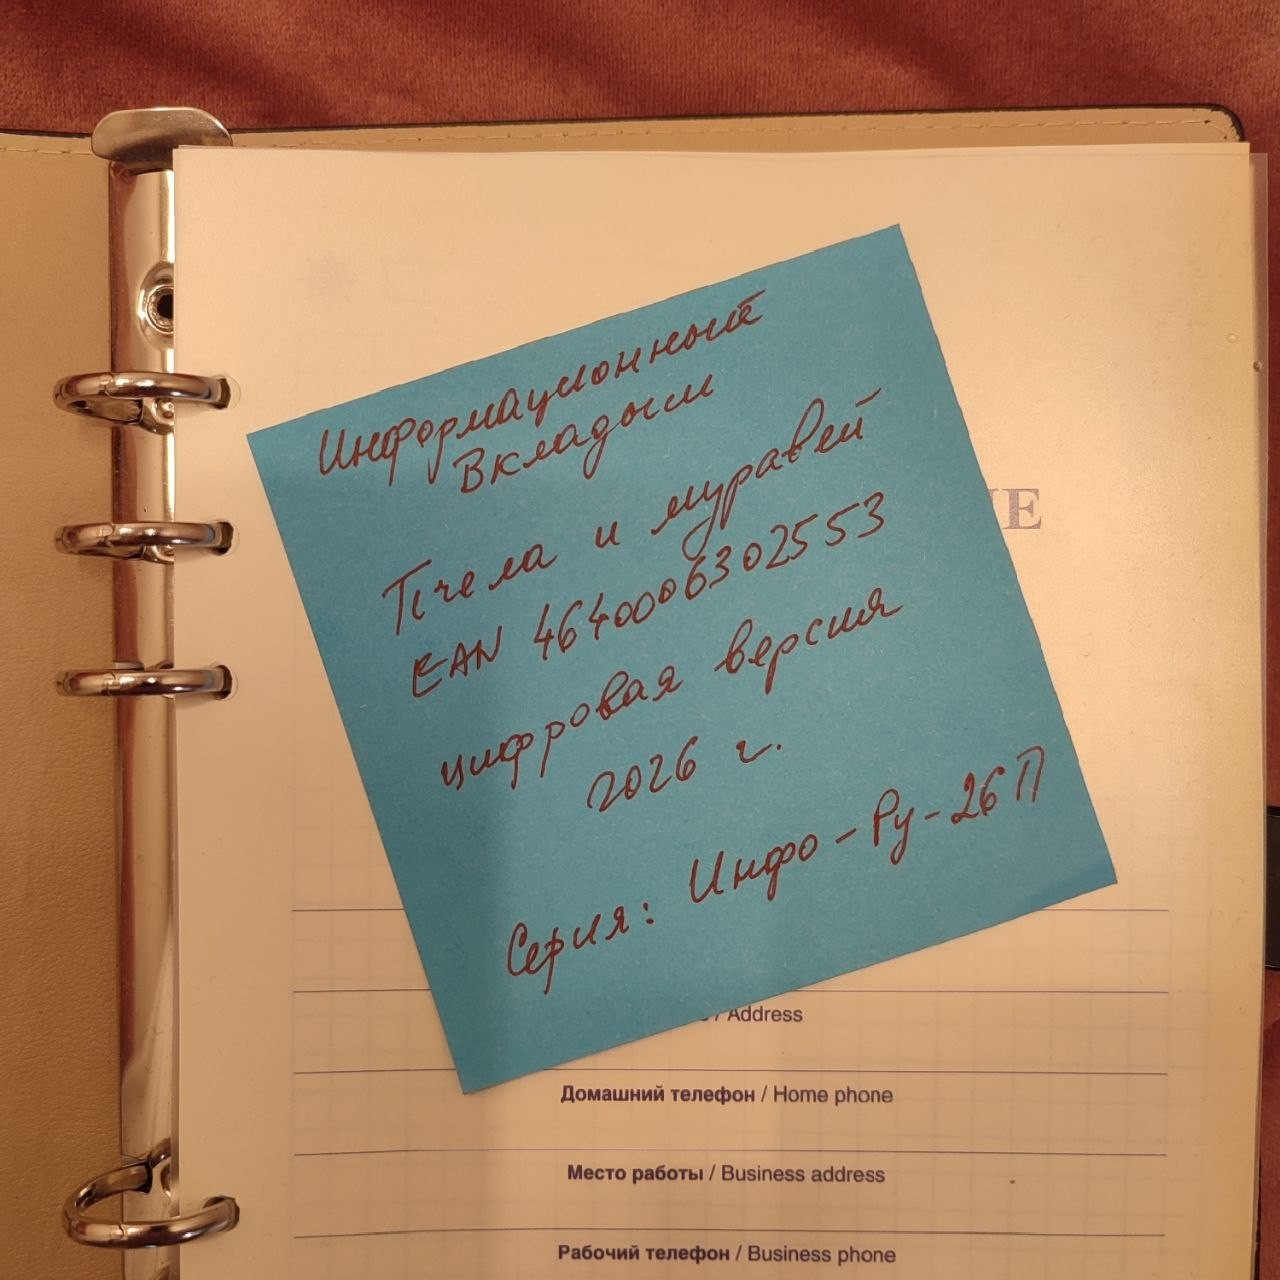 Информационный
Вкладыш
Пчела и муравей
EAN 4640006302553
цифровая версия
2026 г.
Серия: Инфо-Ру-26П
ИЕ
/ Address
Домашний телефон / Home phone
Место работы / Business address
Рабочий телефон / Business phone